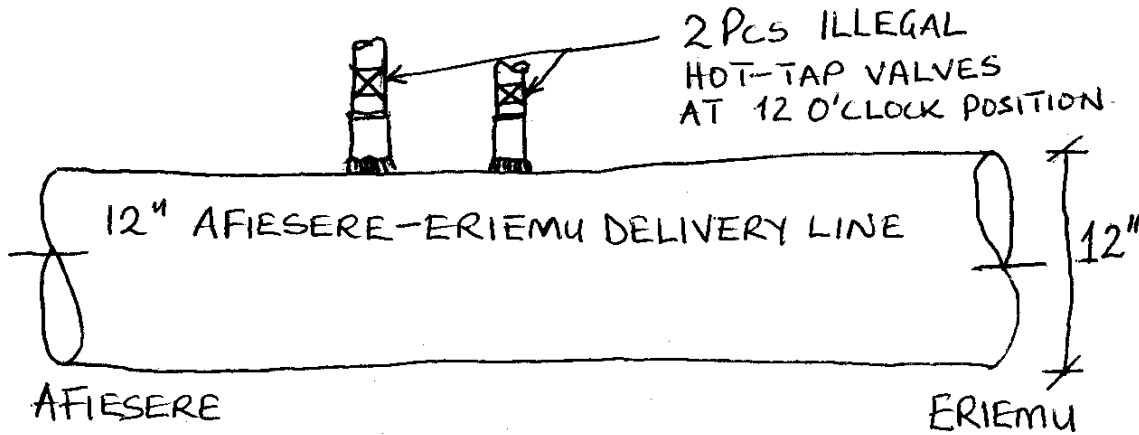 2 PCS ILLEGAL
HOT-TAP VALVES
AT 12 O'CLOCK POSITION
12" AFIESERE-ERIEMU DELIVERY LINE
12"
AFIESERE
ERIEMU